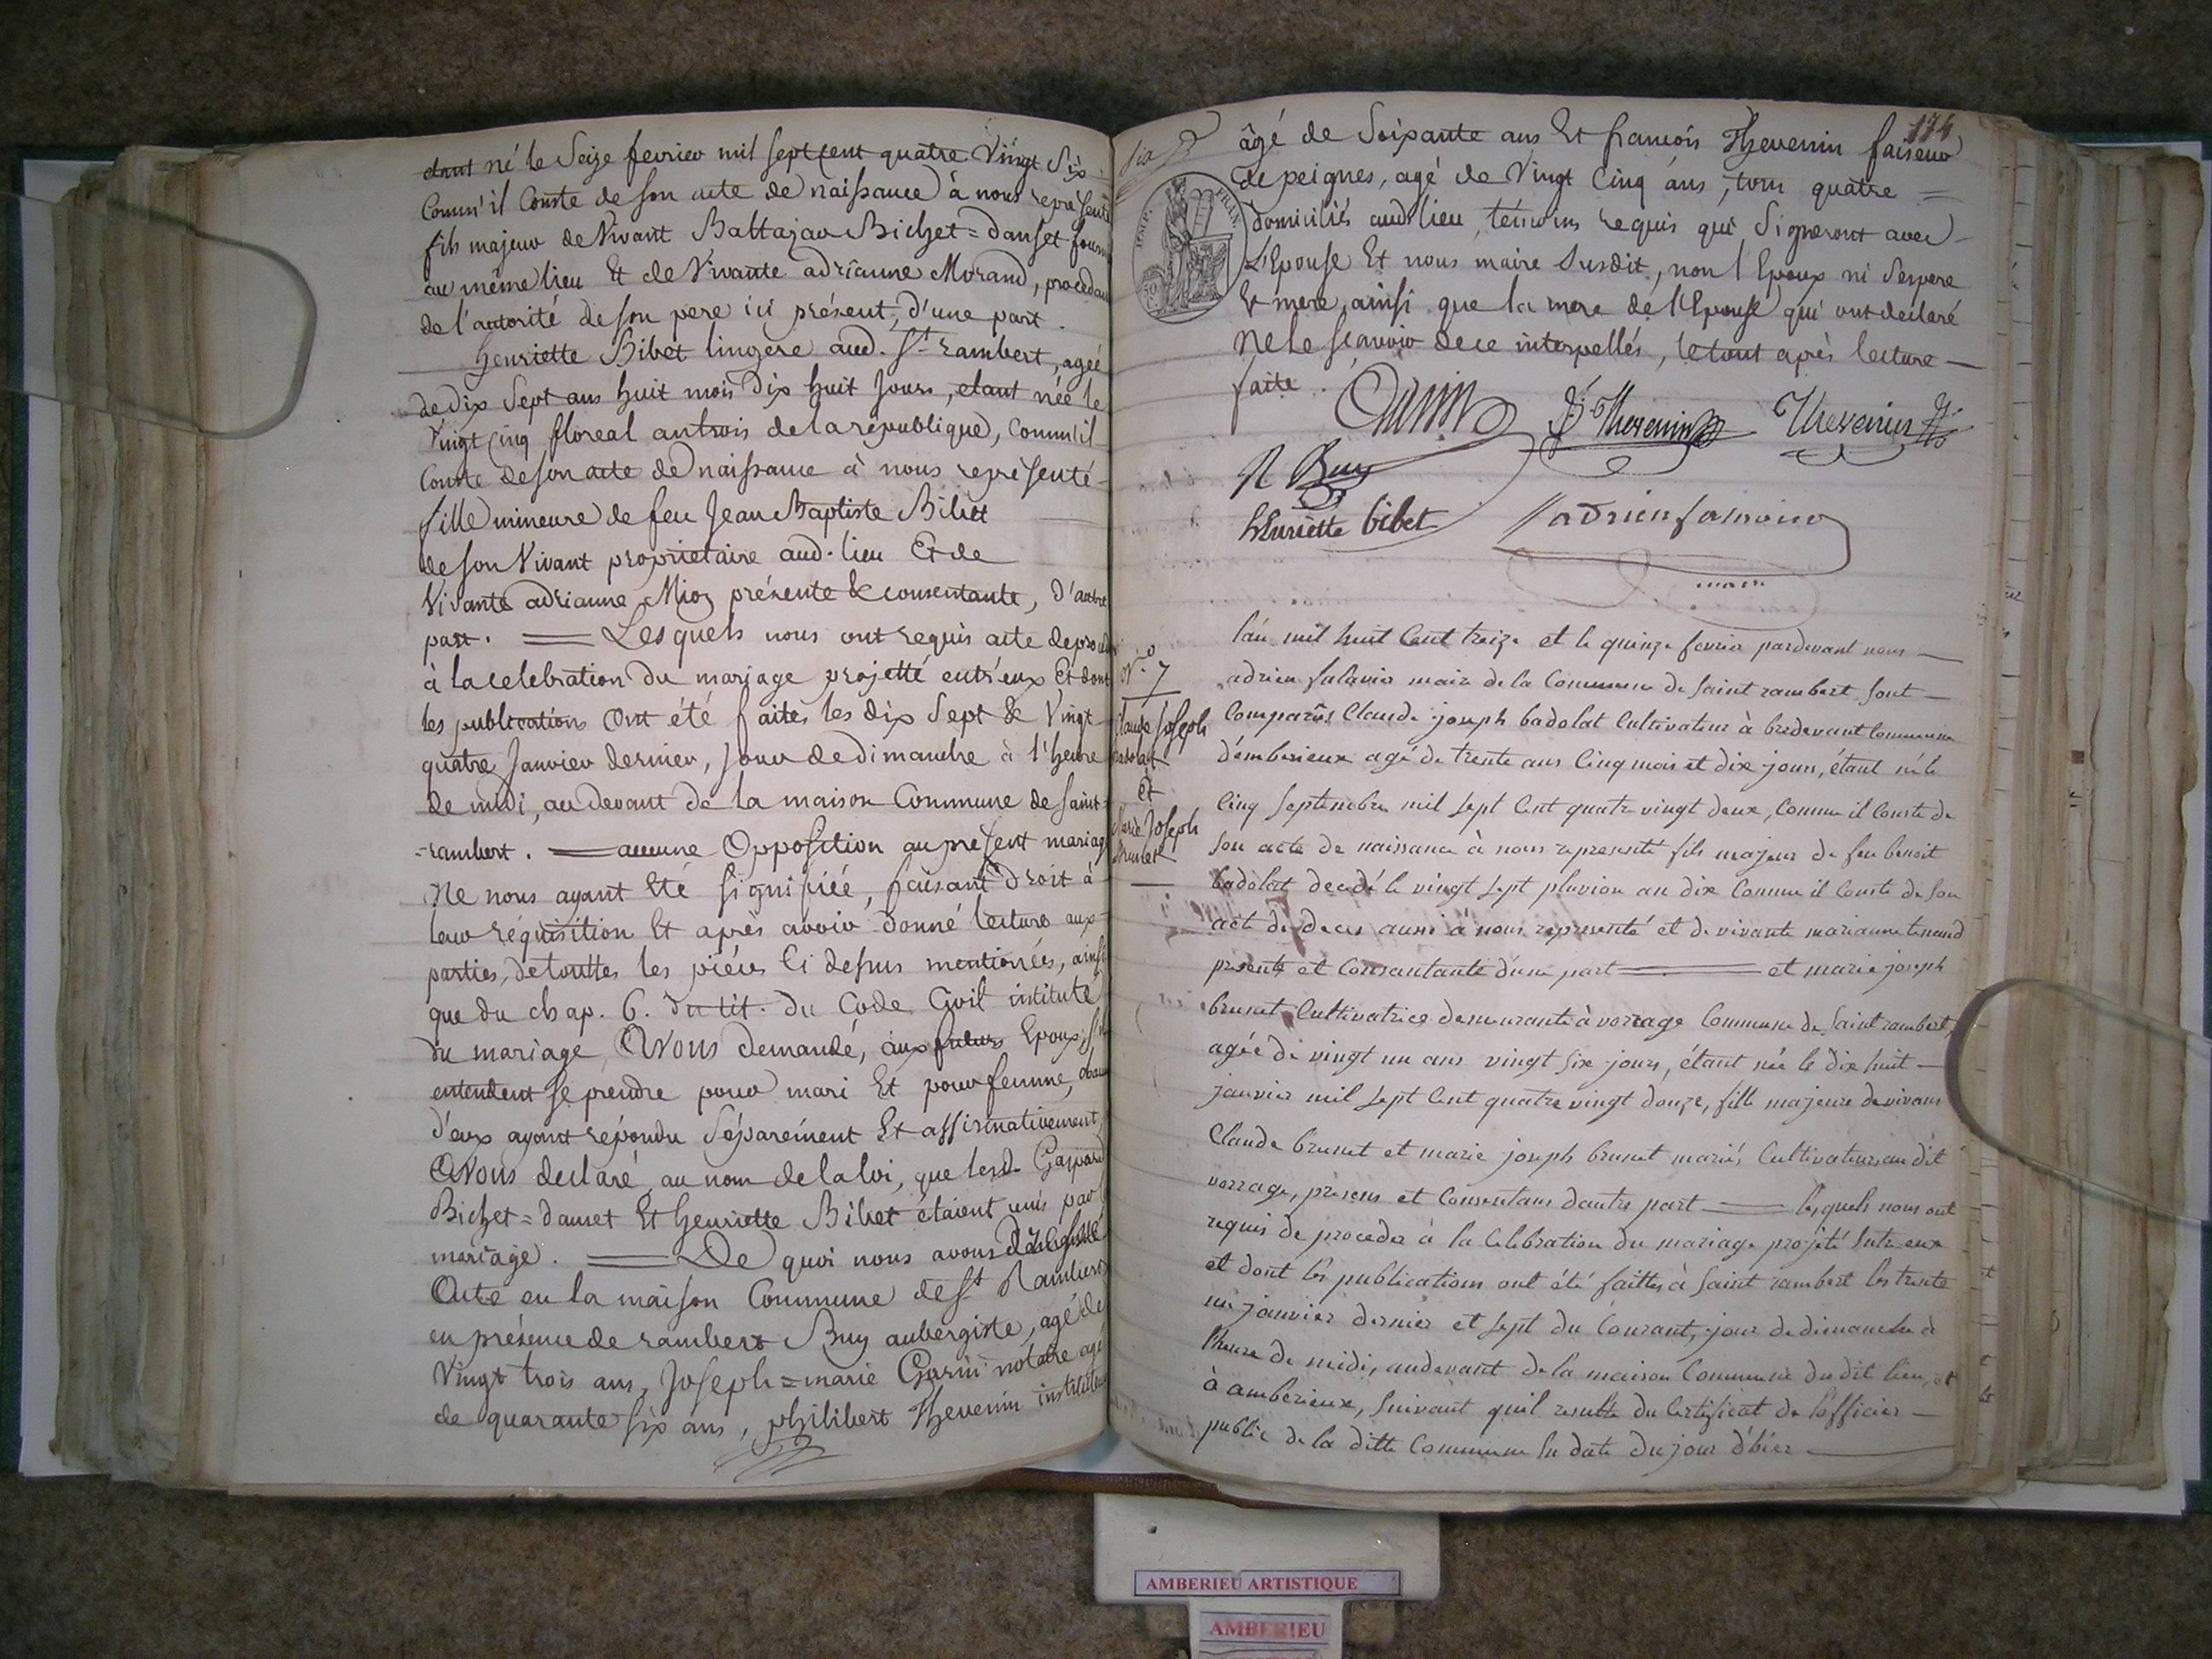 étant né le Seize fevrier mil sept Cent quatre Vingt Six
Comm'il Conste de son acte de naissance à nous représenté
fils majeur de Vivant Baltazar Bichet=danset
au même lieu Et de Vivante adrianne Morand, procedant
de l'autorité de son pere ici présent, d'une part.
henriette Bibet lingere aud. St rambert, agée
de dix Sept ans huit mois dix huit Jours, etant née le
Vingt Cinq floreal an trois de la république, Comm'il
Conste de son acte de naissance à nous représenté
fille mineure de feu Jean Baptiste Bibet
de son Vivant propriétaire aud. lieu Et de
Vivante adrianne Mioz présente & consentante, d'autre
part. = Lesquels nous ont requis acte de
à la celebration du mariage projetté entr'eux Et dont
les publications Ont été faites les dix Sept & Vingt
quatre Janvier dernier, Jour de dimanche à l'heure
de midi, au devant de la maison Commune de saint=
=rambert. = aucune Opposition au présent mariage
Ne nous ayant Eté signifiée, faisant droit à
leur réquisition Et après avoir donné lecture aux
parties, de touttes les pièces Ci dessus mentionées, ainsi
que du chap. 6. du tit. du Code Civil intitulé
du mariage, Avons demandé, aux futurs Epoux,
entendent se prendre pour mari Et pour femme,
d'eux ayant répondu Séparément Et affirmativement
Avons declaré au nom de la loi, que lesd. Gaspard
Bichet=danset Et henriette Bibet étaient unis par
mariage. = De quoi nous avons
Acte en la maison Commune de St Rambert
en présence de rambert Buy aubergiste, agé de
Vingt trois ans, Joseph=marie Garin notaire agé
de quarante six ans, philibert Thevenin instituteur
174
âgé de Soixante ans Et francois Thevenin faiseur
de peignes, agé de Vingt Cinq ans, tous quatre =
domiciliés aud. lieu, témoins requis qui Signeront avec
L'Epouse Et nous maire Susdit, non l'Epoux ni Sespere
Et mere, ainsi que la mere de l'Epouse qui ont declaré
Ne le scavoir de ce interpellés, le tout après lecture
faite.
Garin Pt Thevenin Thevenin fs
R Buy
henriette bibet adrien salavier
maire
N.º 7
Claude Joseph
badolat
Et
Marie Joseph
brunet
l'an mil huit Cent treize et le quinze fevrier pardevant nous
adrien salavier maire de la Commune de Saint rambert, sont
Comparûs Claude joseph badolat Cultivateur à bredevant Commune
d'emberieux agé de trente ans Cinq mois et dix jours, étant né le
Cinq Septembre mil sept Cent quatre vingt deux, Comme il Conste de
son acte de naissance à nous representé fils majeur de feu benoit
badolat decédé le vingt sept pluviose an dix Comme il Conste de son
acte de deces aussi à nous representé et de vivante marianne tenand
présente et Consantante d'une part = et marie joseph
brunet Cultivatrice demeurante à vorrage Commune de Saint rambert,
agée de vingt un ans vingt six jours, étant née le dix huit
janvier mil sept Cent quatre vingt douze, fille majeure de vivans
Claude brunet et marie joseph brunet mariés Cultivateurs au dit
vorrage, présens et Consentans dautre part = lesquels nous ont
requis de proceder à la Celebration du mariage projeté Entr-eux
et dont les publications ont été faittes à Saint rambert les trente
un janvier dernier et sept du Courant, jour de dimanche à
l'heure de midi, audevant de la maison Commune du dit lieu, et
à amberieux, suivant quil resulte du Certificat de l'officier
public de la ditte Commune En date du jour d'hier
AMBERIEU ARTISTIQUE
AMBERIEU